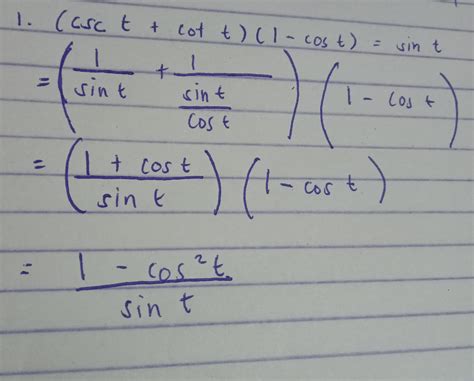 1. (csc t + cot t)(1 - cos t) = sin t
= (1/sin t + 1/(sin t/cos t)) (1 - cos t)
= ((1 + cos t)/sin t) (1 - cos t)
= (1 - cos²t)/sin t